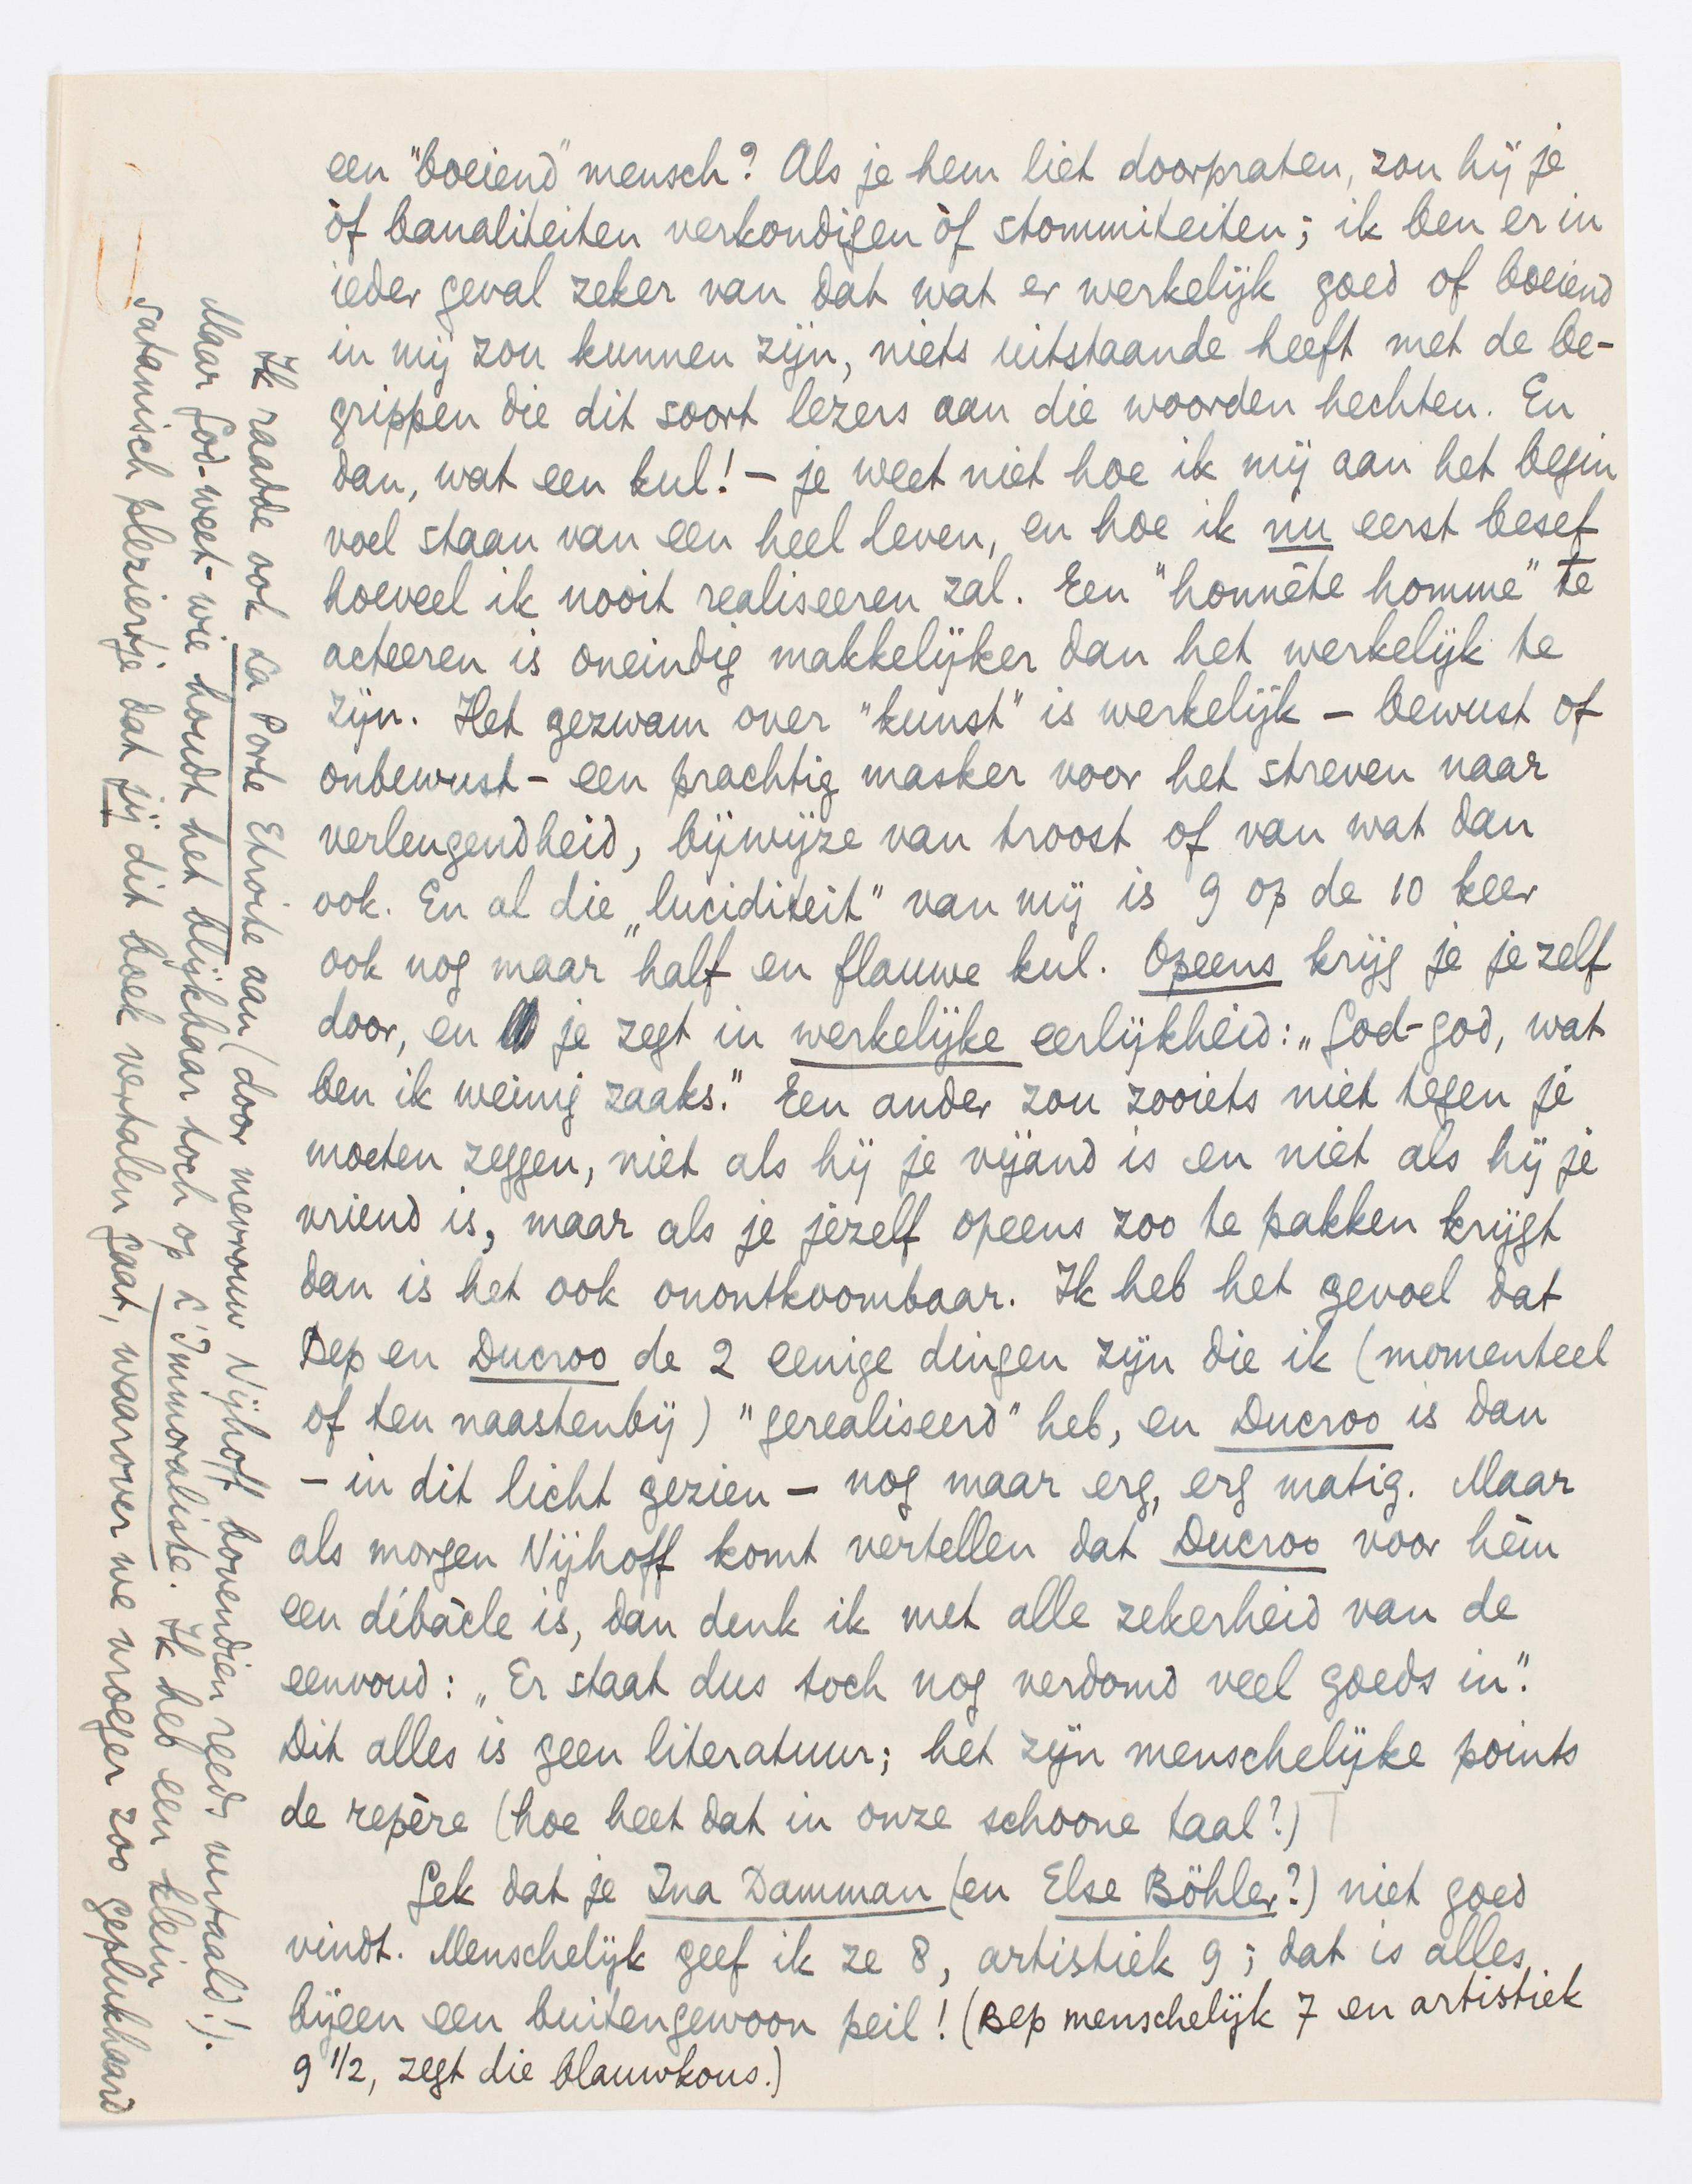 een "boeiend" mensch? Als je hem liet doorpraten, zou hij je
òf banaliteiten verkondigen òf stommiteiten; ik ben er in
ieder geval zeker van dat wat er werkelijk goed of boeiend
in mij zou kunnen zijn, niets uitstaande heeft met de be-
grippen die dit soort lezers aan die woorden hechten. En
dan, wat een kul! – je weet niet hoe ik mij aan het begin
voel staan van een heel leven, en hoe ik nu eerst besef
hoeveel ik nooit realiseeren zal. Een "honnête homme" te
acteeren is oneindig makkelijker dan het werkelijk te
zijn. Het gezwam over "kunst" is werkelijk – bewust of
onbewust – een prachtig masker voor het streven naar
verleugendheid, bijwijze van troost of van wat dan
ook. En al die „luciditeit" van mij is 9 op de 10 keer
ook nog maar half en flauwe kul. Opeens krijg je jezelf
door, en je zegt in werkelijke eerlijkheid: „God-god, wat
ben ik weinig zaaks." Een ander zou zooiets niet tegen je
moeten zeggen, niet als hij je vijand is en niet als hij je
vriend is, maar als je jezelf opeens zoo te pakken krijgt
dan is het ook onontkoombaar. Ik heb het gevoel dat
Bep en Ducroo de 2 eenige dingen zijn die ik (momenteel
of ten naastenbij) "gerealiseerd" heb, en Ducroo is dan
– in dit licht gezien – nog maar erg, erg matig. Maar
als morgen Nijhoff komt vertellen dat Ducroo voor hèm
een débâcle is, dan denk ik met alle zekerheid van de
eenvoud: „Er staat dus toch nog verdomd veel goeds in".
Dit alles is geen literatuur; het zijn menschelijke points
de repère (hoe heet dat in onze schoone taal?)
Gek dat je Ina Damman (en Else Böhler?) niet goed
vindt. Menschelijk geef ik ze 8, artistiek 9; dat is alles
bijeen een buitengewoon peil! (Bep menschelijk 7 en artistiek
9 1/2, zegt die blauwkous.)
Ik raadde ook La Porte Etroite aan (door mevrouw Nijhoff bovendien reeds vertaald!).
Maar God-weet-wie houdt het blijkbaar toch op L'Immoraliste. Ik heb een klein
satanisch pleziertje dat jij dit boek vertalen gaat, waarover we vroeger zoo geplukhaard